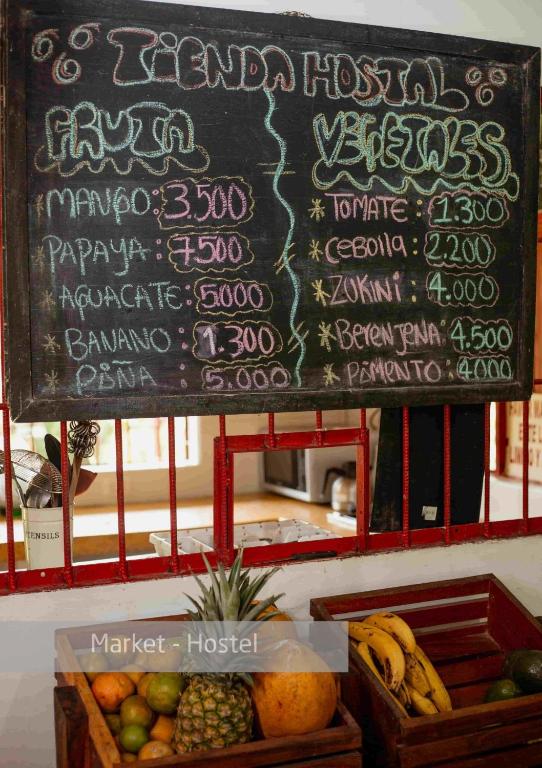 TIENDA HOSTAL
FRUTA
MANGO: 3.500
PAPAYA: 7.500
AGUACATE: 5.000
BANANO: 1.300
PIÑA: 5.000
VEGETALES
TOMATE: 1.300
Cebolla: 2.200
ZUKINI: 4.000
BerenJena: 4.500
PIMENTO: 4000
TENSILS
Market - Hostel